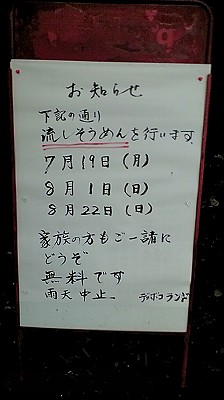 お知らせ
下記の通り
流しそうめんを行います
7月19日(月)
8月1日(日)
8月22日(日)
家族の方もご一諸に
どうぞ
無料です
雨天中止
デコボコランド